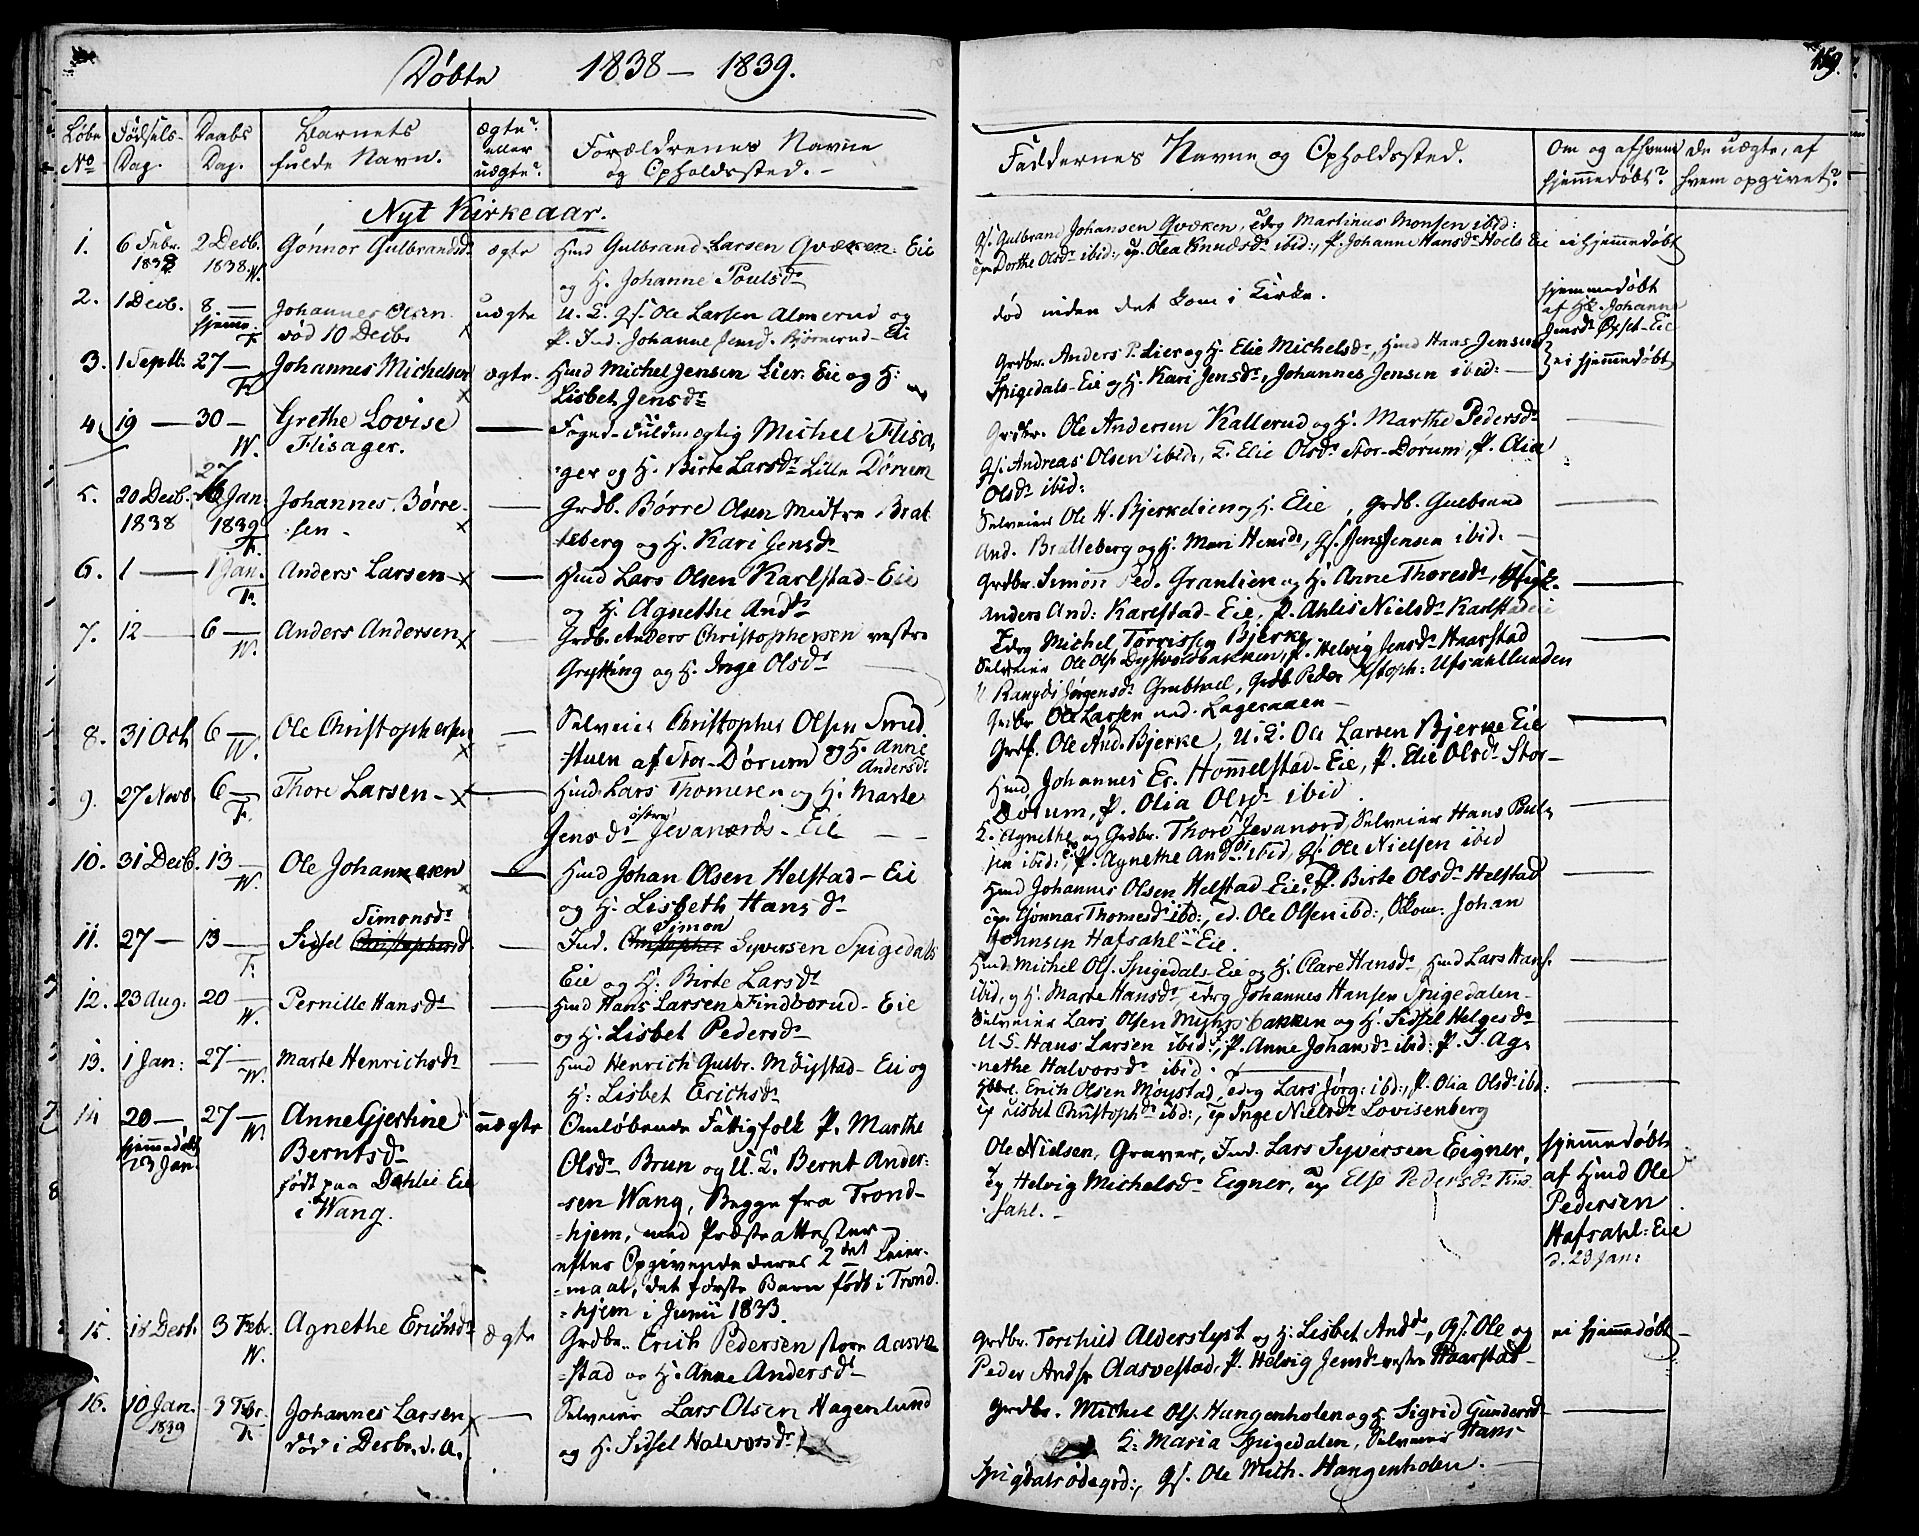 Døbte 1838 – 1839.
159.
Løbe No
Fødsels-Dag.
Daabs Dag.
Barnets fulde Navn.
ægte? eller uægte?
Forældrenes Navne og Opholdssted. –
Faddernes Navne og Opholdssted.
Om og af hvem hjemmedøbt?
De uægte, af hvem opgivet?
Nyt Kirkeaar.
1. 6 Febr. 1838 2 Decb. 1838. W. Gønnor Gulbrandsdr ægte Huusmd Gulbrand Larsen Qvæken-Eie
og H. Johanne Poulsdr
Gs. Gulbrand Johansen Qvæken, Martinus Monsen ibid:
Dorthe Olsdr ibid:, Olea Knudsdr ibid:, P. Johanne Hansdr Hoels Eie ei hjemmedøbt
2. 1 Decb. 8 — hjemme F. Johannes Olsen død 10 Decb. uægte U. K. Gs. Ole Larsen Almerud og
P. Ind. Johanne Jensdr Bjørnerud-Eie
død inden det kom i Kirke.
hjemmedøbt af Johanne Jensdr Opset-Eie
3. 1 Septb: 27 — F. Johannes Michelsen ægte. Hmd Michel Jensen Lier-Eie og H:
Lisbet Jensdr
Grdbr. Anders P. Lier og H. Elie Michelsdr, Hmd Hans Jensen
Spigedals-Eie og H. Kari Jensdr, Johannes Jensen ibid: — ei hjemmedøbt
4. 19 — 30 — W. Grethe Lovise Flisager. — Foged-Fuldmægtig Michel Flisa-
ger og H. Birte Larsdr Lille Dørum
Grdbr. Ole Andersen Kallerud og H. Marthe Pedersdr
Gs. Andreas Olsen ibid:, K. Elie Olsdr Stor-Dørum, P. Olia
Olsdr ibid:
5. 20 Decb. 1838 27 Jan. 1839 F. Johannes Børre-
sen – — Grdb. Børre Olsen Midtre Brat-
teberg og H. Kari Jensdr
Selveier Ole H. Bjerkelien og H. Elie, Grdb. Gulbrand
And. Bratteberg og H. Mari Hensdr, Gs. Jens Jensen ibid. —
6. 1 — 1 Jan. F. Anders Larsen — Hmd Lars Olsen Karlstad-Eie
og H. Agnethe Andr
Grdbr. Simon Ped. Granlien og H. Anne Thoresdr,
Anders And: Karlstad-Eie, P. Ahlis Nielsdr Karlstad
7. 12 — 6 — W. Anders Andersen — Grdb. Anders Christophersen vestre
Grytting og H. Inge Olsdr
Michel Torrissen Bjerke
Selveier Ole Ols. Dystvoldbakken, P. Helvig Jensdr Haarstad
Rangdi Jørgensdr Grubhoel, Grdb Peder Ufsahllunden
Grdbr Ole Larsen ned. Lageraaen –
8. 31 Oct 6 — W. Ole Christophersen — Selveier Christopher Olsen Smed-
stuen af Stor-Dørum og H. Anne Andersdr
Grdf. Ole And. Bjerke, U. K. Ole Larsen Bjerke Eie
Hmd Johannes Er. Hommelstad-Eie, P. Elie Olsdr Stor-
Dørum, P. Olia Olsdr ibid
9. 27 Novb. 6 — F. Thore Larsen — Hmd: Lars Thomesen og H: Marte
Jensdr østre Jevanords-Eie
K. Agnethe og Grdbr. Thore Jevanord, Selveier Hans Poul-
sen ibid:, P. Agnethe Andsdr ibid, Gs. Ole Nielsen ibid
10. 31 Decb. 13 — W. Ole Johannesen — Hmd Johan Olsen Helstad-Eie
og H: Lisbeth Hansdr
Hmd Johannes Olsen Helstad-Eie, P. Birte Olsdr Helstad
Gønnar Thomesdr ibd:, Ole Olsen ibd:, Johan
Johnsen Hafsahl-Eie.
11. 27 — 13 — F. Sidsel Simonsdr — Ind. Simon Syversen Spigedals
Eie og H: Birte Larsdr
Hmd: Michel Ols. Spigedals-Eie og H. Clare Hansdr, Hmd Lars Hans.
ibid, og H. Marte Hansdr, Johannes Hansen Spigedalen –
12. 23 Aug. 20 — W. Pernille Hansdr — Hmd Hans Larsen Findborud-Eie
og H. Lisbet Pedersdr
Selveier Lars Olsen Myhrsbakken og H. Sidsel Helgesdr
U.S. Hans Larsen ibid:, P. Anne Johansdr ibid: P. I. Ag-
nethe Halvorsdr ibid.
13. 1 Jan: 27 — W. Marte Henrichsdr — Hmd Henrich Gulbr. Møystad-Eie og
H: Lisbet Erichsdr
Erich Olsen Møystad, Lars Jørg: ibd:, P. Olia Olsdr ibd:
Lisbet Christophdr ibd:, Inge Nielsdr Lovisenberg
14 20 — hjemmedøbt 23 Jan. 27 — W. Anne Gjertine
Berntsdr
født paa Dahlie Eie
i Wang. uægte Omløbende Fattigfolk P. Marthe
Olsdr Brun og U. K. Bernt Ander-
sen Wang, Begge fra Trond-
hjem, med Præsteattester –
efter Opgivende deres 2det Leier-
maal, det første Barn født i Trond-
hjem i Junii 1833.
Ole Nielsen, Graver, Ind. Lars Syversen Eigner,
Helvig Michelsdr Eigner, Else Pedersdr Find-
sahl. –
hjemmedøbt
af Hmd Ole
Pedersen
Hafsahl-Eie
d. 23 Jan:
15. 18 Decb. 3 Feb. W. Agnethe Erichsdr ægte Grdbr. Erich Pedersen store Aasve-
stad og H. Anne Andersdr
Grdbr. Torchild Alderslyst og H: Lisbet Anddr, Gs. Ole og
Peder Andsr Aasvestad, P. Helvig Jensdr vestre Haarstad – ei hjemmedøbt –
16. 10 Jan. 1839 3 Febr. F. Johannes Larsen
død i Decbr. d. A. — Selveier Lars Olsen Hagenlund
og H. Sidsel Halvorsdr
Grdbr. Michel Ols. Hangenholen og H. Sigrid Gundersdr
K: Maria Spigedalen, Selveier Hans
Spigdalsødegrd:, Gs. Ole Mich. Hangenholen. —